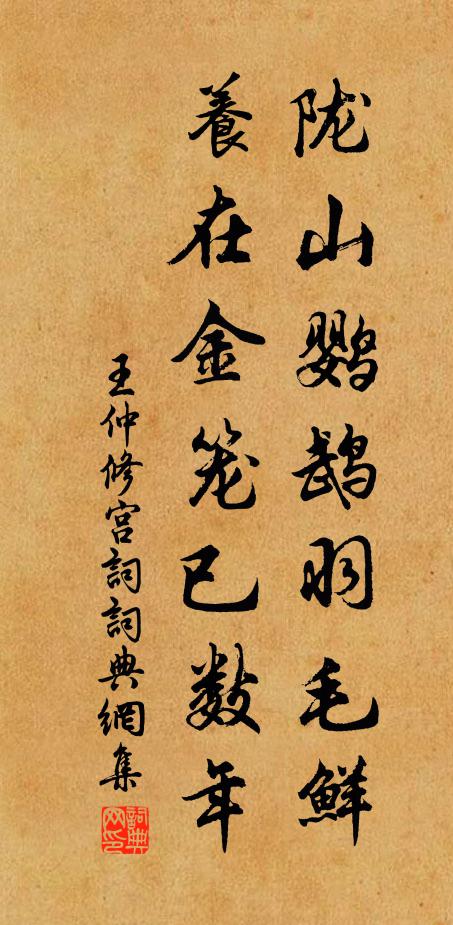 陇山鹦鹉羽毛鲜
養在金笼已数年
王仲修宫詞詞典網集
詞典
网印